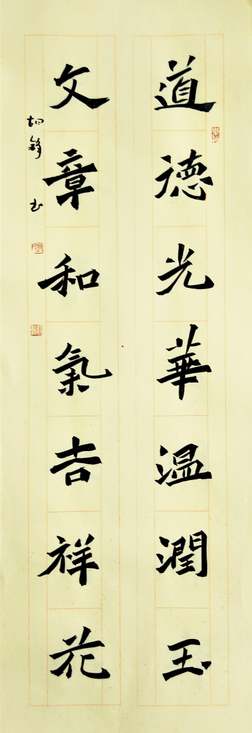 道德光華温潤玉
文章和氣吉祥花